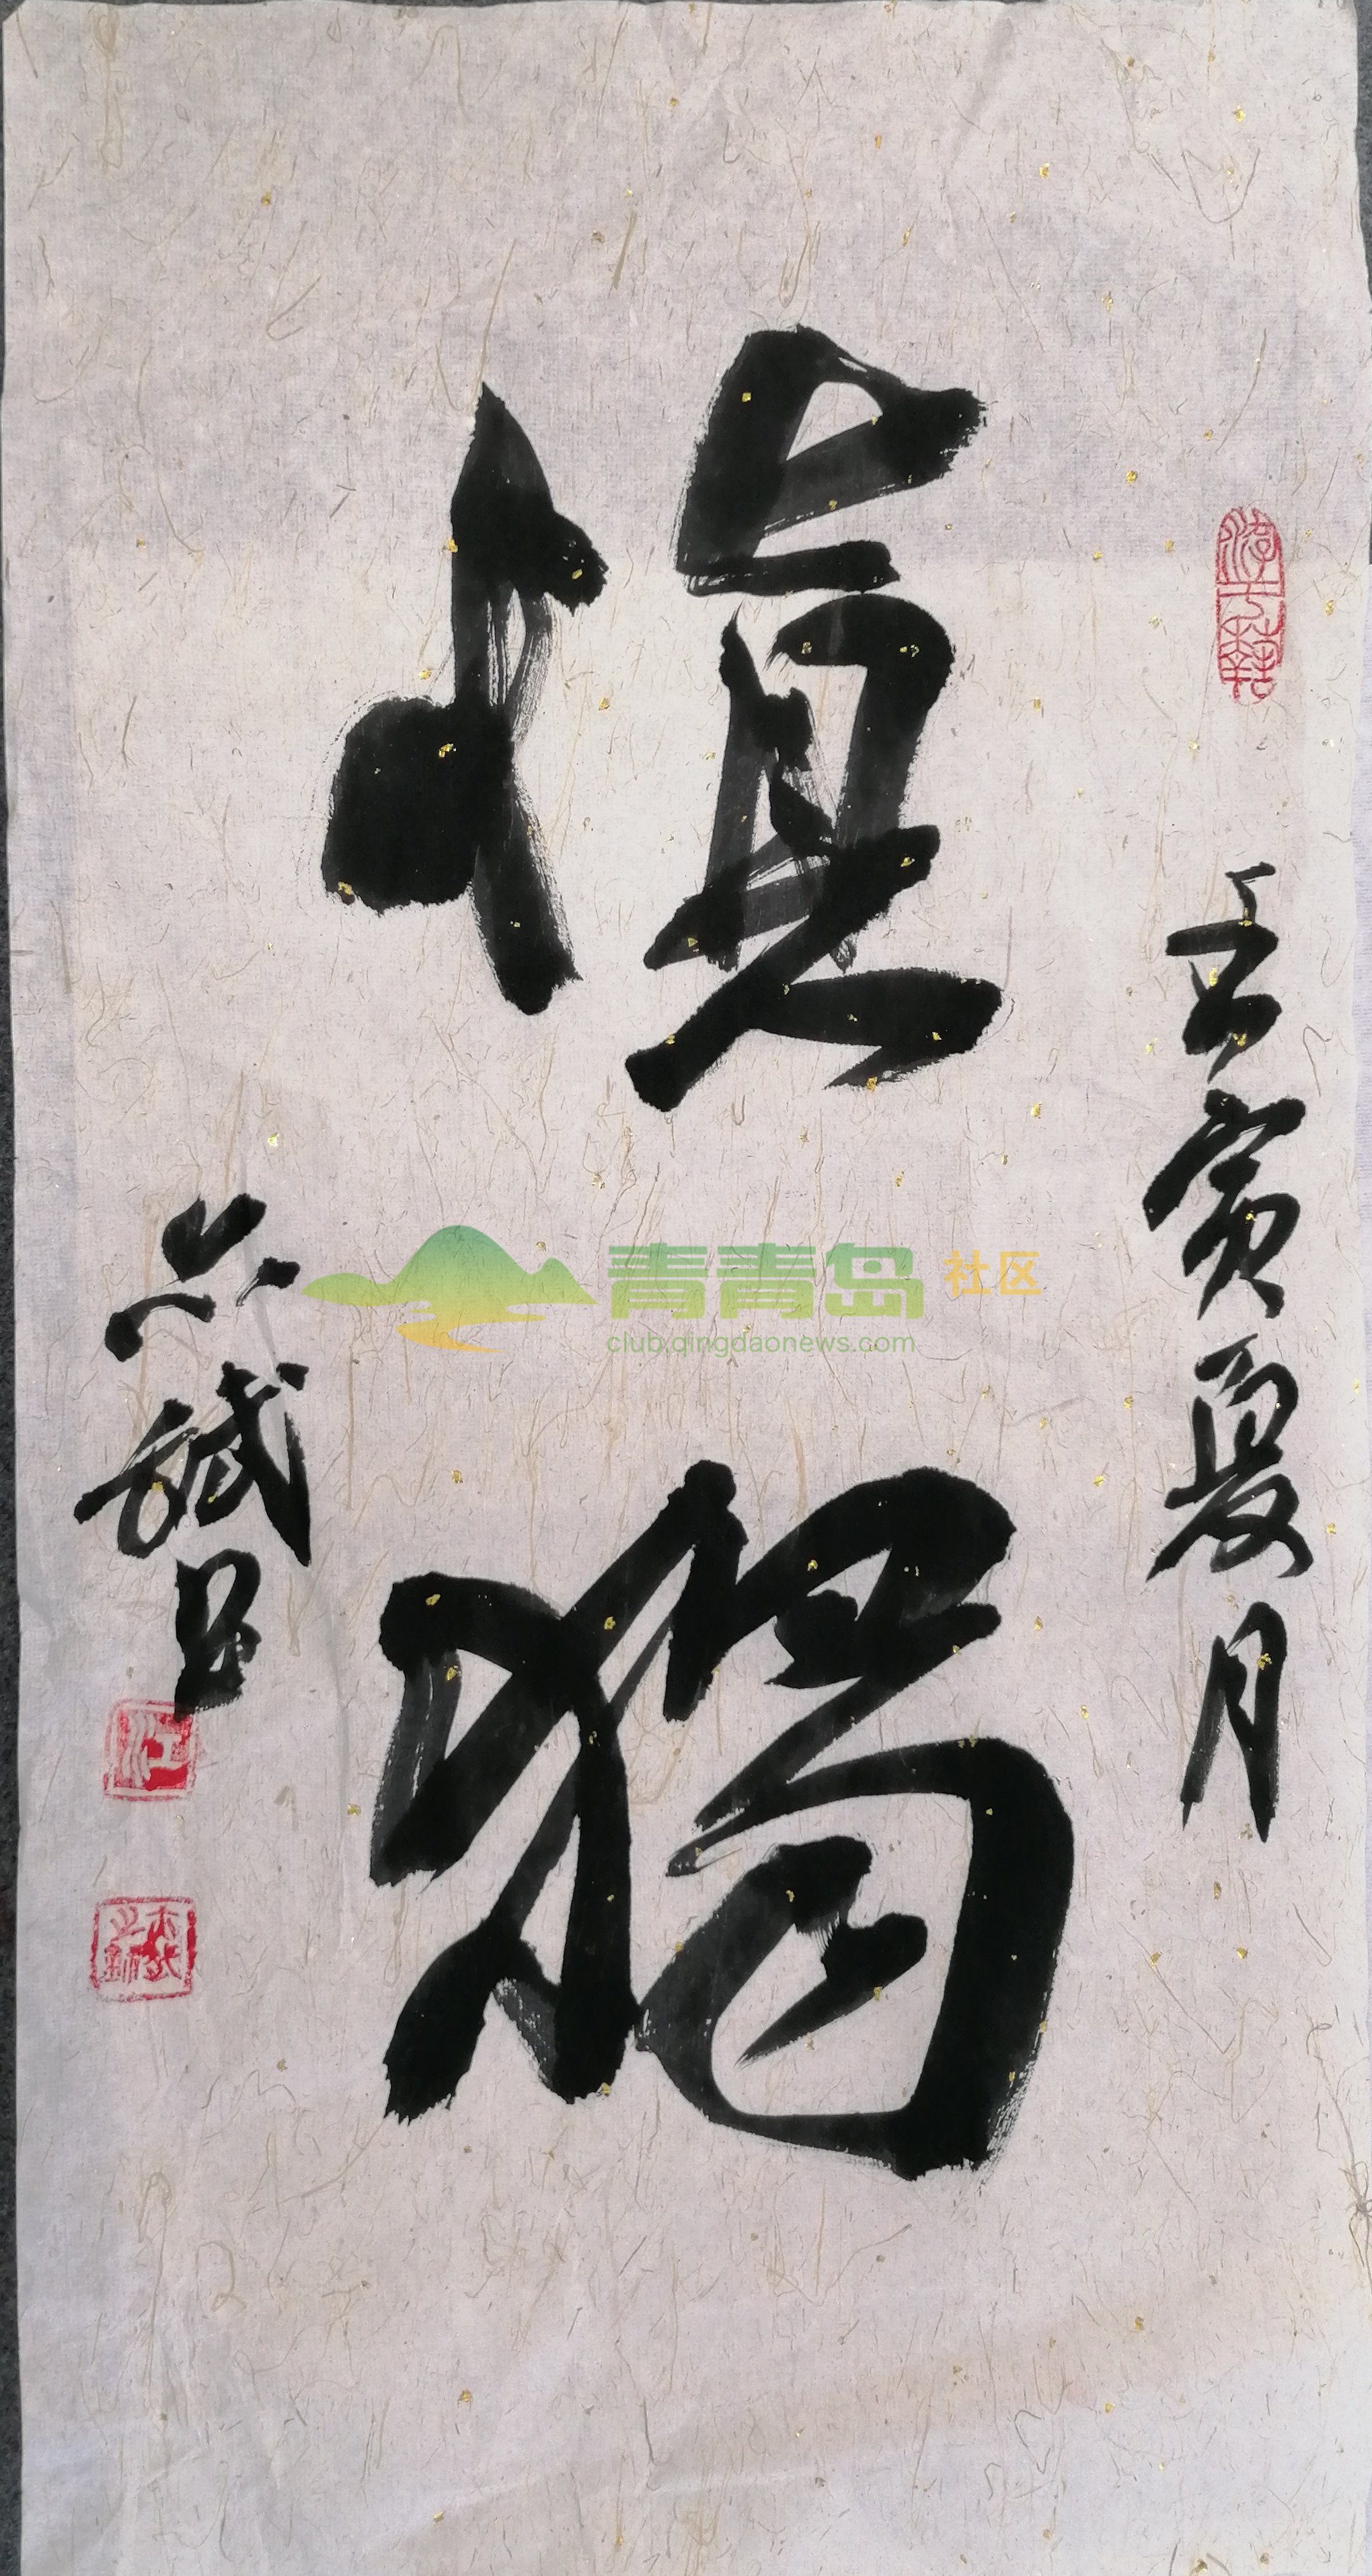 壬寅夏月
慎獨
青青岛 社区
club.qingdaonews.com